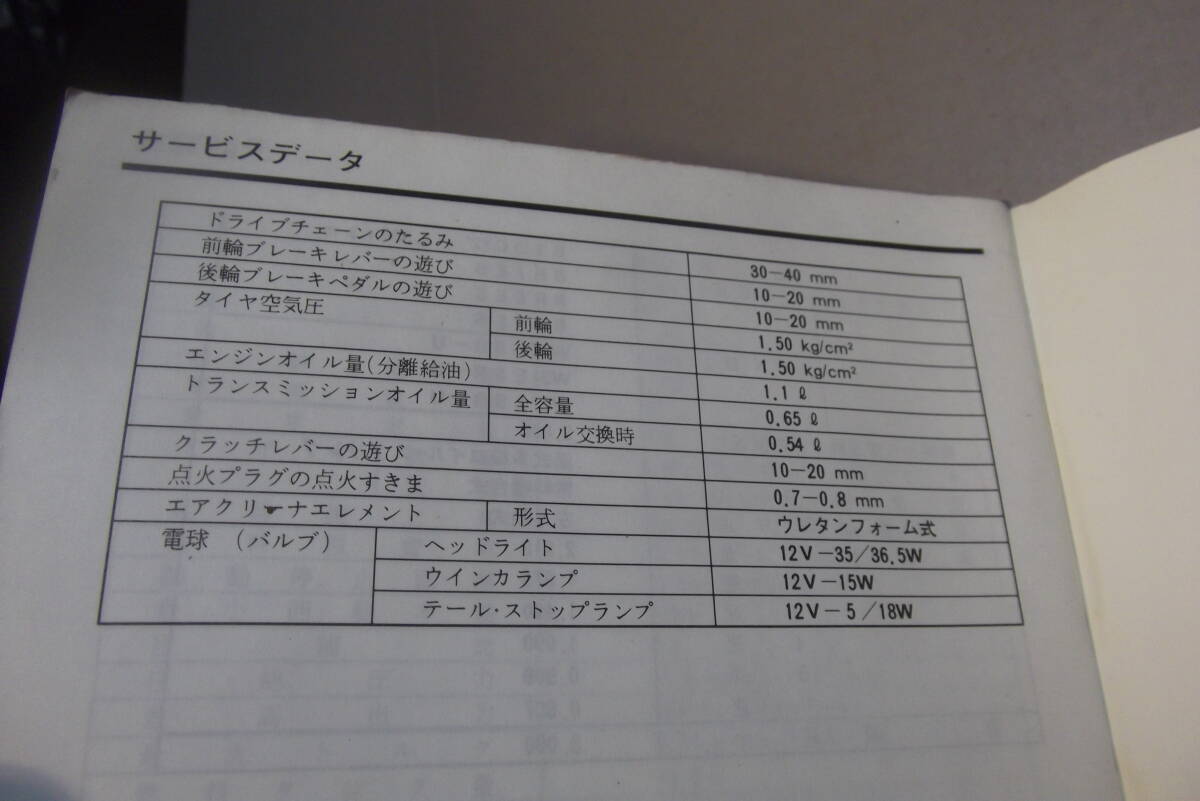 サービスデータ
ドライブチェーンのたるみ 30-40 mm
前輪ブレーキレバーの遊び 10-20 mm
後輪ブレーキペダルの遊び 10-20 mm
タイヤ空気圧 前輪 1.50 kg/cm²
後輪 1.50 kg/cm²
エンジンオイル量(分離給油) 1.1 ℓ
トランスミッションオイル量 全容量 0.65 ℓ
オイル交換時 0.54 ℓ
クラッチレバーの遊び 10-20 mm
点火プラグの点火すきま 0.7-0.8 mm
エアクリーナエレメント 形式 ウレタンフォーム式
電球 (バルブ) ヘッドライト 12V-35/36.5W
ウインカランプ 12V-15W
テール・ストップランプ 12V-5/18W